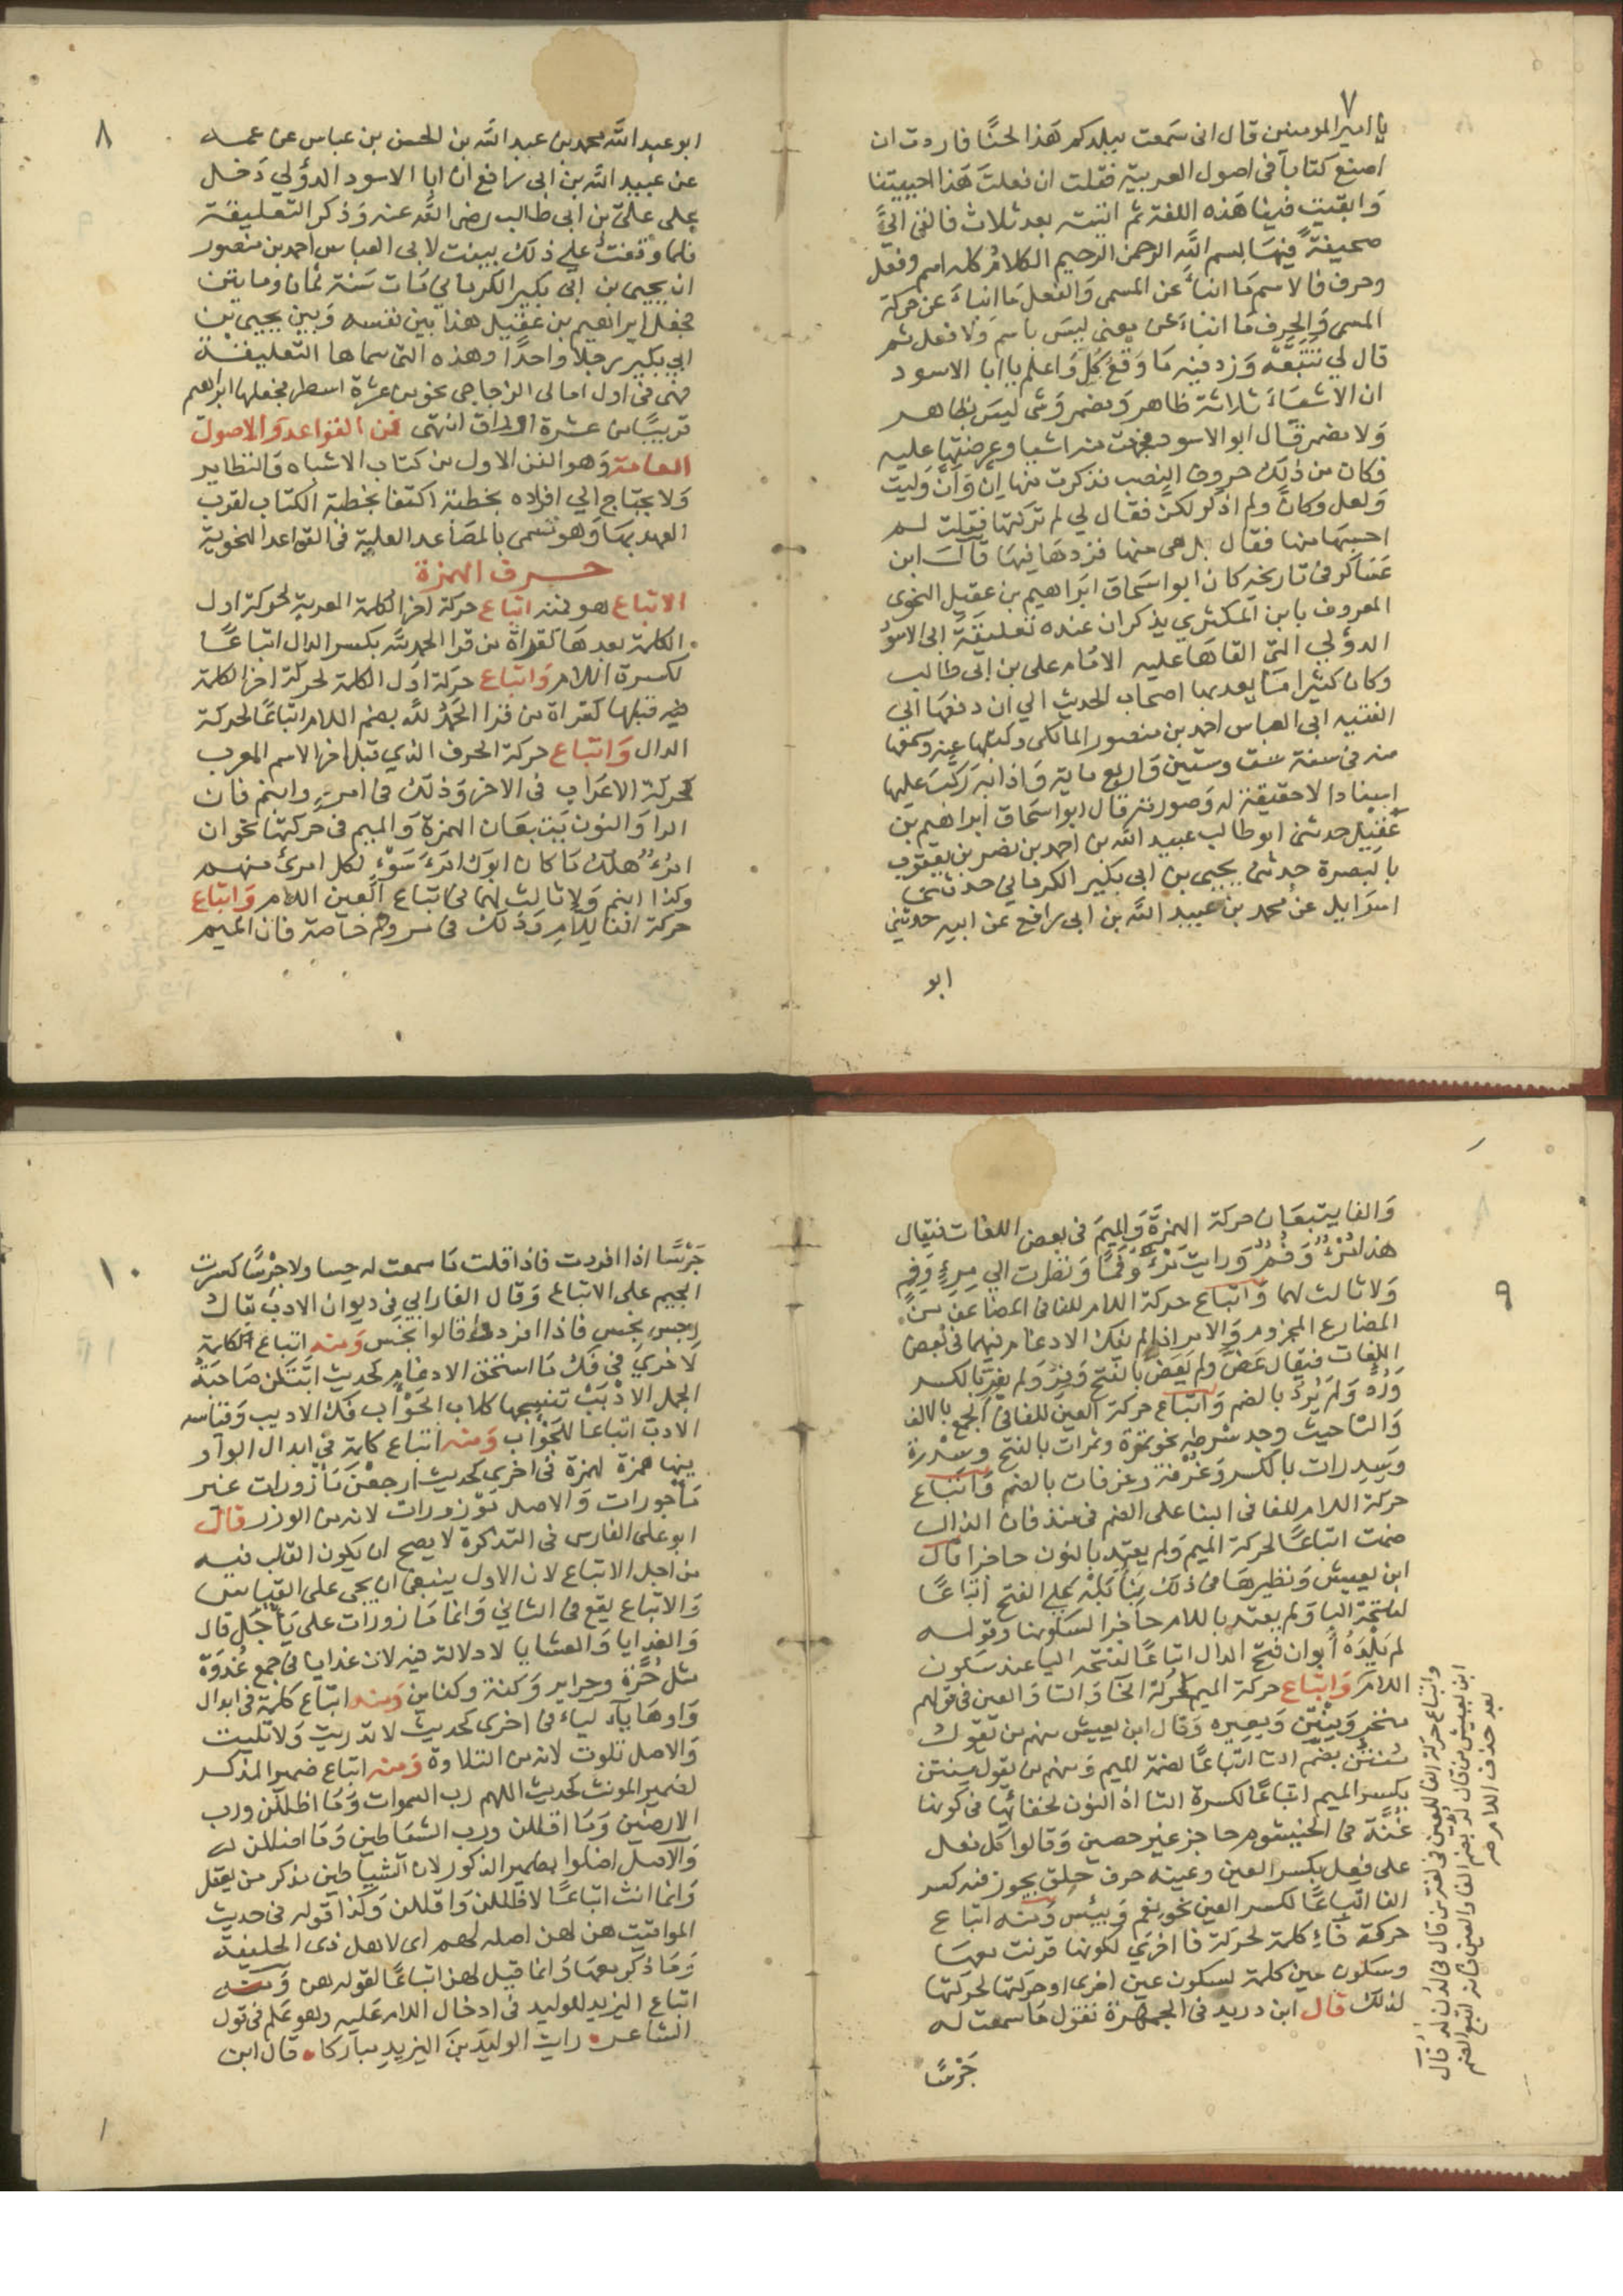 ٧
يا امير المومنين قال انى سمعت ببلدكم هذا لحنًا فاردت ان
اصنع كتابا فى اصول العربية فقلت ان فعلت هذا احييتنا
وابقيت فينا هذه اللغة ثم اتيته بعد ثلاث فالقى اليّ
صحيفة فيها بسم الله الرحمن الرحيم الكلام كله اسم وفعل
وحرف فالاسم ما انباء عن المسمى والفعل ما انباء عن حركة
المسمى والحرف ما انباء عن معنى ليس باسم ولا فعل ثم
قال لي تتبعه وزد فيه ما وقع لك واعلم يا ابا الاسود
ان الاشياء ثلاثة ظاهر ومضمر وشى ليس بظاهر
ولا مضمر قال ابو الاسود فجمعت منه اشيا وعرضتها عليه
فكان من ذلك حروف النصب فذكرت منها ان وأن وليت
ولعل وكان ولم اذكر لكن فقال لي لم تركتها فقلت لم
احسبها منها فقال بل هى منها فزدها فيها قال ابن
عساكر فى تاريخه كان ابو اسحاق ابراهيم بن عقيل النحوى
المعروف بابن المكبري يذكر ان عنده تعليقة ابى الاسود
الدؤلي التى القاها عليه الامام على بن ابى طالب
وكان كثيرا ما يعد بها اصحاب الحديث الي ان دفعها الى
الفقيه ابى العباس احمد بن منصور المالكى وكتبها عنه وسمعها
منه فى سنة ست وستين واربع ماية واذا به ركب عليها
اسنادا لا حقيقة له وصورته قال ابو اسحاق ابراهيم بن
عقيل حدثنى ابو طالب عبيد الله بن احمد بن نصر بن يعقوب
بالبصرة حدثنى يحيى بن ابى بكير الكرماني حدثنى
اسرايل عن محمد بن عبيد الله بن ابى رافع عن ابيه حدثني
ابو
٨
ابو عبد الله محمد بن عبد الله بن الحسن بن عباس عن عمه
عن عبيد الله بن ابى رافع ان ابا الاسود الدؤلي دخل
على علىّ بن ابى طالب رضى الله عنه وذكر التعليقة
فلما وقفت على ذلك بينت لابى العباس احمد بن منصور
ان يحيى بن ابى بكير الكرماني مات سنة ثمان ومايتين
فجعل ابراهيم بن عقيل هذا بين نفسه وبين يحيى بن
ابي بكير رجلا واحدًا وهذه التى سماها التعليقة
هى فى اول امالى الزجاجى نحو من عشرة اسطر فجعلها ابراهيم
قريبًا من عشرة اوراق انتهى فن القواعد والاصول
العامة وهو الفن الاول من كتاب الاشباه والنظاير
ولا يحتاج الي افراده بخطبة اكتفا بخطبة الكتاب لقرب
العهد بها وهو تسمى بالمصاعد العلية فى القواعد النحوية
حرف الهمزة
الاتباع هو فمنه اتباع حركة اخر الكلمة المعربة لحركة اول
الكلمة بعدها كقراة من قرا الحمد لله بكسر الدال اتباعًا
لكسرة اللام واتباع حركة اول الكلمة لحركة اخر الكلمة
قبلها كقراة من قرا الحمدُ لله بضم اللام اتباعًا لحركة
الدال واتباع حركة الحرف الذي قبل اخر الاسم المعرب
لحركة الاعراب فى الاخر وذلك فى امرئ وابنم فان
الرا والنون يتبعان الهمزة والميم فى حركتهما نحو ان
امرُؤٌ هلك ما كان ابوك امرَءَ سَوْءٍ لكل امرئ منهم
وكذا ابنم ولا ثالث لهما فى اتباع العين اللام واتباع
حركة الفا للام وذلك فى مرء وفم خاصة فان الميم
٩
والفا يتبعان حركة الهمزة والميم فى بعض اللغات فيقال
هذا مُرْءٌ وفُمٌ ورايت مَرْءً وفَمًا ونظرت الي مِرْءٍ وفِمٍ
ولا ثالث لهما واتباع حركة اللام للفا فى المضاعف من
المضارع المجزوم والامر اذا لم يفك الادغام فيهما فى بعض
اللغات فيقال عَضَّ ولم يَعَضَّ بالفتح وفِرِّ ولم يفِرِّ بالكسر
ورُدُّ ولم يَرُدُّ بالضم واتباع حركة العين للفا فى الجمع بالالف
والتا حيث وجد شرطه نحو تمرة وتمرات بالفتح وسدرة
وسِدِرات بالكسر وغُرفة وغرفات بالضم واتباع
حركة اللام للفا فى البنا على الضم فى منذ فان الذال
ضمت اتباعًا لحركة الميم ولم يعتد بالنون حاجزا قال
ابن يعيش ونظيرها فى ذلك بناء بَلْهَ علي الفتح اتباعًا
لفتحة البا ولم يعتد باللام حاجزا لسكونها وقوله
لم يَلْدَهُ أبوان فتح الدال اتباعًا لفتحه اليا عند سكون
اللام واتباع حركة الميم لحركة الخا والتا والعين فى قولهم
منخر ومِنْتِن وبعيره وقال ابن يعيش منهم من يقول
مُنتُن بضم التا اتباعًا لضمة الميم ومنهم من يقول مِنتن
بكسر الميم اتباعًا لكسرة التا اذ النون لخفائها فى كونها
غُنّة فى الخيشوم حاجز غير حصين وقالوا كل فعل
على فَعِل بكسر العين وعينه حرف حلق يجوز فيه كسر
الفا اتباعًا لكسر العين نحو نعم وبئس ومنه اتباع
حركة فاء كلمة لحركة فا اخرى لكونها قرنت معها
وسكون عين كلمة لسكون عين اخرى او حركتها لحركتها
لذلك قال ابن دريد فى الجمهرة تقول ما سمعت له
جَرْسًا
واتباع حركة الفا للعين فى لغة من قال فى لَدُن لُدُ قال
ابن يعيش من قال لُدُ بضم الفا والعين فانه اتبع الضم
بعد حذف اللام
١٠
جَرْسًا اذا افردت فاذا قلت ما سمعت له حِسا ولا جِرْسًا كسرت
الجيم على الاتباع وقال الفارابي فى ديوان الادب يقال
رِجس نِجس فاذا افردوا قالوا نجَس ومنه اتباع الكلمة
لاخرى فى فك ما استحق الادغام كحديث ايتكن صاحبة
الجمل الادْبَبْ تنبحها كلاب الحَوْأب فك الادبب وقياسه
الادبّ اتباعا للحَوْأب ومنه اتباع كلمة فى ابدال الواو
فيها همزة لهمزة فى اخرى كحديث ارجعن مأزورات غير
مأجورات والاصل موزورات لانه من الوزر قال
ابو على الفارسى فى التذكرة لا يصح ان يكون القلب فيه
من اجل الاتباع لان الاول ينبغى ان يجى على القياس
والاتباع يقع فى الثاني وانما مازورات على يأجل قال
والغدايا والعشايا لا دلالة فيه لان غدايا فى جمع غُدْوَة
مثل حُرّة وحراير وكنة وكناين ومنه اتباع كلمة فى ابدال
واوها ياء لياء فى اخرى كحديث لا دريت ولا تليت
والاصل تلوت لانه من التلاوة ومنه اتباع ضمير المذكر
لضمير المونث كحديث اللهم رب السموات وما اظللن ورب
الارضين وما اقللن ورب الشياطين وما اضللن
والاصل اضلوا بضمير الذكور لان الشياطين مذكر من يعقل
وانما انث اتباعًا لاظللن واقللن وكذا قوله فى حديث
المواقيت هن لهن اصله لهم اى لاهل ذى الحليفة
وما ذكر معها وانما قيل لهن اتباعًا لقوله هن ومنه
اتباع اليزيد للوليد فى ادخال اللام عليه وهو علم فى قول
الشاعر رايت الوليدَ بنَ اليزيدِ مباركا قال ابن